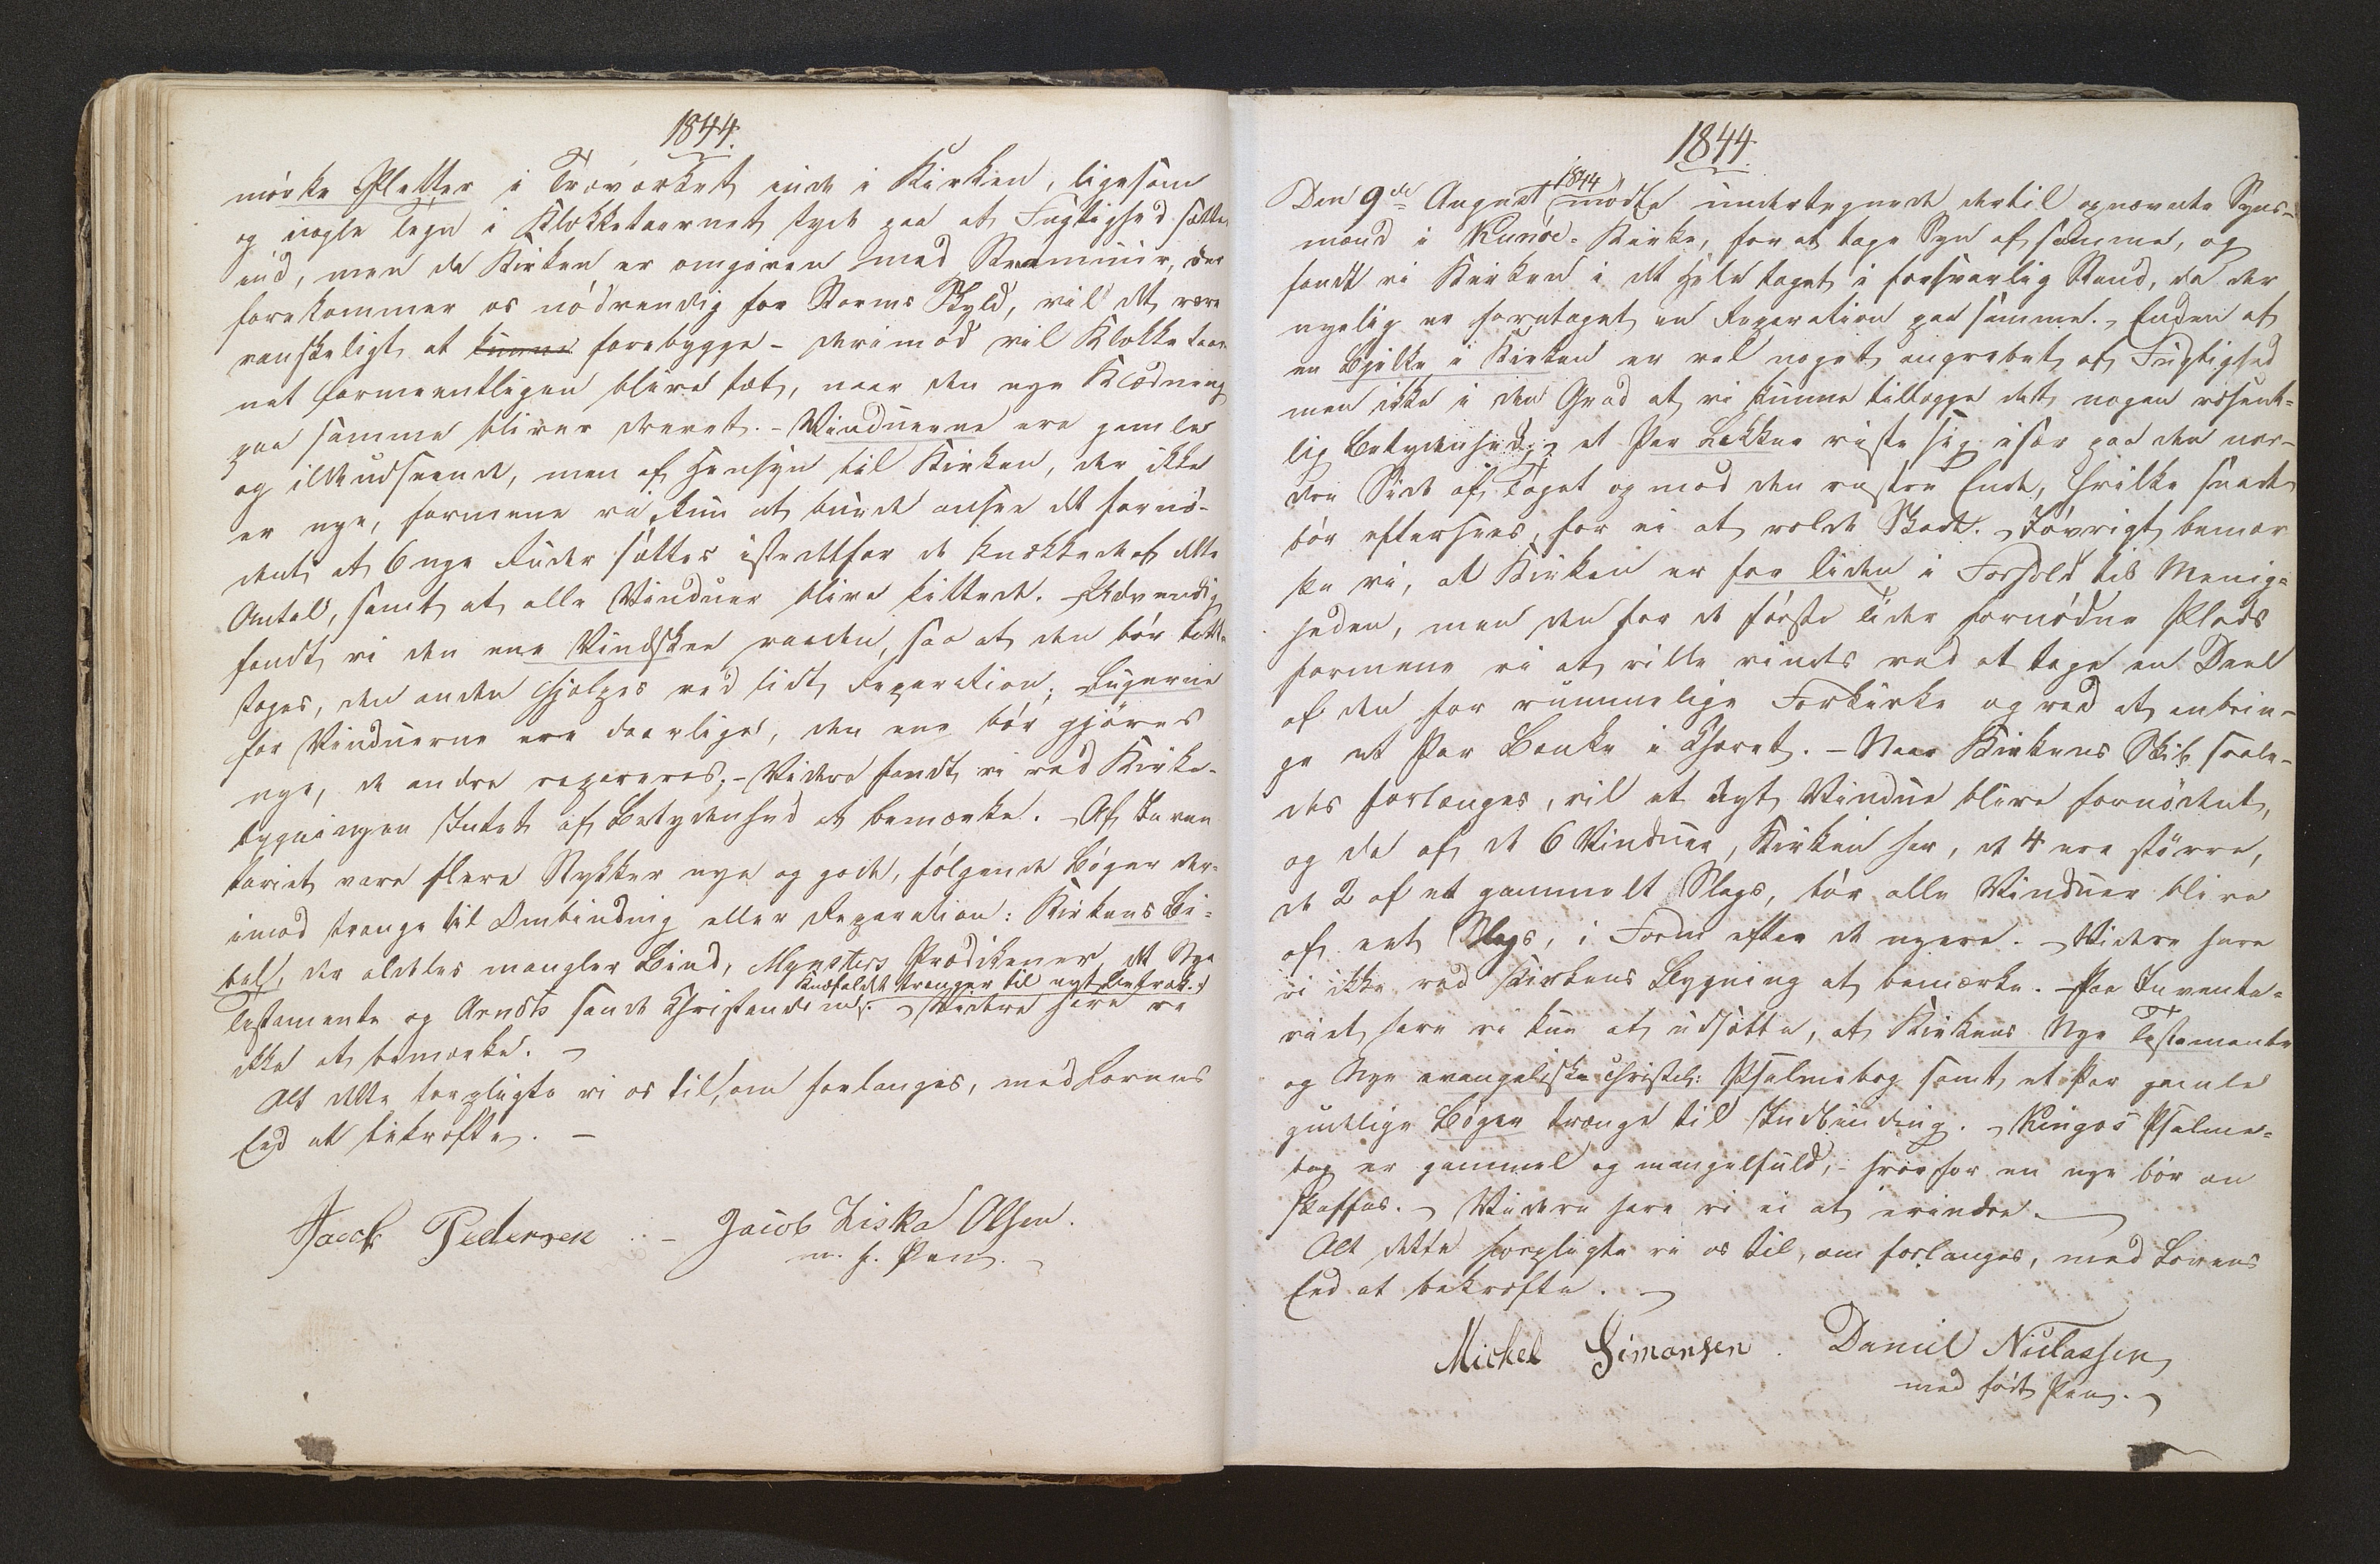 1844.
mörke Pletter i Træværket inde i Kirken, ligesom
og nogle Tegn i Klokketaarnet tyde paa at Fugtighed sætter
ind, men da Kirken er omgiven med Steenmuur, der
forekommer os nödvendig for Storms Skyld, vil det være
vanskeligt at kunne forebygge – derimod vil Klokketaar-
net formeentligen blive tæt, naar den nye Klædning
paa samme bliver tjæret. – Vinduerne ere gamle
og ildeudseende, men af Hensyn til Kirken, der ikke
er nye, formene vi kun at burde ansee det fornö-
dent at 6 nye Ruder sættes istedetfor de knækkede af dette
Antal, samt at alle Vinduer blive kittede. – Udvendig
fandt vi den ene Vindskee raaden, saa at den bör bort-
tages, den anden hjælpes ved lidt Reparation; Lugerne
for Vinduerne ere daarlige, den ene bör gjöres
nye, de andre repareres. – Videre fandt vi ved Kirke-
bygningen Intet af Betydenhed at bemærke. – Af Inven-
tariet vare flere Stykker nye og gode, fölgende Böger der-
imod trænge til Ombinding eller Reparation: Kirkens Bi-
bel, der aldeles mangler Bind, Mynsters Prædikener, det Nye
Knæfaldet trænger til nyt Betræk.
Testamente og Arndts sande Christendom. – Videre have vi
ikke at bemærke. –
Alt dette forpligte vi os til, om forlanges, med Lovens
Eed at bekræfte. –
Jacob Pedersen . – Jacob Ziska Olsen.
m. f. Pen. –
1844.
Den 9de August 1844 mödte undertegnede dertil opnævnte Syns-
mænd i Kunöe-Kirke, for at tage Syn af samme, og
fandt vi Kirken i det Hele taget i forsvarlig Stand, da der
nyelig er foretaget en Reparation paa samme. – Enden af
en Bjelke i Kirken er vel noget angrebet af Fugtighed
men ikke i den Grad at vi kunne tillægge det nogen væsent-
lig Betydenhed; – et Par Lækker viste sig især paa den nor-
dre Side af Taget og mod den vestre Ende, hvilke snart
bör eftersees, for ei at volde Skade. – Iövrigt bemær
ke vi, at Kirken er for liden i Forhold til Menig-
heden, men den for de förste Tider fornödne Plads
formene vi at ville vindes ved at tage en Deel
af den for rummelige Forkirke og ved at anbrin-
ge et Par Bænke i Choret. – Naar Kirkens Skib saale-
des forlænges, vil et nyt Vindue blive fornödent,
og da af de 6 Vinduer, Kirken har, de 4 ere större,
de 2 af et gammelt Slags, bör alle Vinduer blive
af eet Slags, i Form efter de nyere. – Videre have
vi ikke ved Kirkens Bygning at bemærke. – Paa Inventa-
riet have vi kun at udsætte, at Kirkens Nye Testamente
og Nye evangeliske christel: Psalmebog samt et Par gamle
gudelige Böger trænge til Indbinding. – Kingos Psalme-
bog er gammel og mangelfuld, – hvorfor en nye bör an
skaffes. – Videre have vi ei at erindre. –
Alt dette forpligte vi os til, om forlanges, med Lovens
Eed at bekræfte. –
Michel Simonsen . Daniel Niclassen
med fört Pen. –